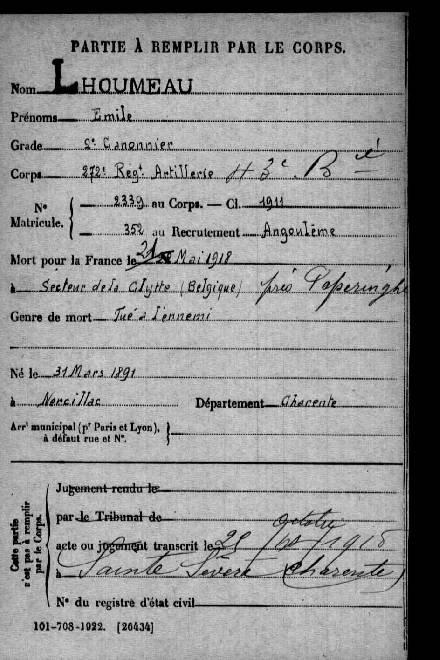 PARTIE À REMPLIR PAR LE CORPS.
Nom LHOUMEAU
Prénoms Emile
Grade 2e Canonnier
Corps 272e Regt Artillerie 43e Bie
No Matricule. 2339 au Corps. — Cl. 1911
352 au Recrutement Angoulême
Mort pour la France le 21 Mai 1918
à Secteur de la Clytte (Belgique) près Poperinghe
Genre de mort Tué à l'ennemi
Né le 31 Mars 1891
à Département Charente
Arrt municipal (pr Paris et Lyon), à défaut rue et No.
Cette partie n'est pas à remplir par le Corps.
Jugement rendu le
par le Tribunal de
acte ou jugement transcrit le 25 octobre 1918
à Sainte Sévère (Charente)
No du registre d'état civil
101-708-1922. [26434]